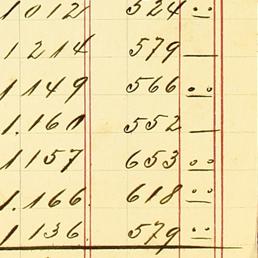 1012 524 "
1214 579 —
1149 566 "
1.160 552 —
1157 653 "
1.166. 618 "
1136 579 "